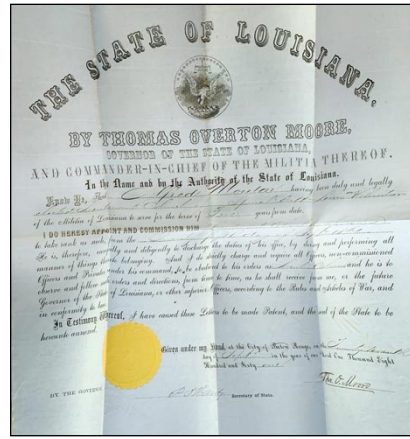 THE STATE OF LOUISIANA,
BY THOMAS OVERTON MOORE,
GOVERNOR OF THE STATE OF LOUISIANA,
AND COMMANDER-IN-CHIEF OF THE MILITIA THEREOF.
In the Name and by the Authority of the State of Louisiana.
Know Ye, That having been duly and legally
of the Militia of Louisiana to serve for the term of years from date.
I DO HEREBY APPOINT AND COMMISSION HIM
to take rank as such, from the
He is, therefore, carefully and diligently to discharge the duties of his office, by doing and performing all
manner of things thereto belonging. And I do strictly charge and require all Officers, non-commissioned
Officers and Privates under his command, to be obedient to his orders as and he is to
observe and follow such orders and directions, from time to time, as he shall receive from me, or the future
Governor of the State of Louisiana, or other superior Officers, according to the Rules and Articles of War, and
in conformity to law.
In Testimony Whereof, I have caused these Letters to be made Patent, and the seal of the State to be
hereunto annexed.
Given under my Hand, at the City of Baton Rouge, on the
day of in the year of our Lord One Thousand Eight
Hundred and Sixty one
Tho. O. Moore
BY THE GOVERNOR
Secretary of State.